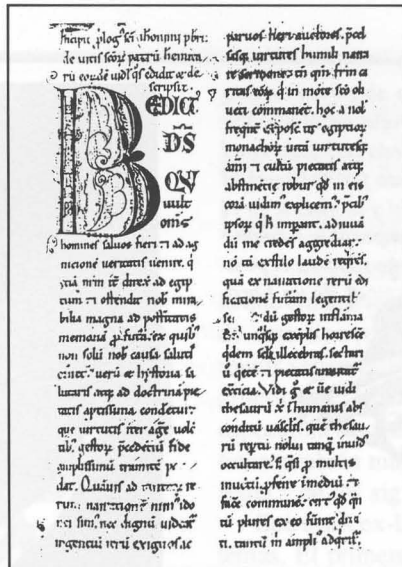 Incipit plog' scī ihonimi pbri
de vitis scōꝝ patrū hemita
rū eordē uidēs qs edidit ac de
scripsit
BEDICT'
DS
QV
uult
om̄s
homines saluos fieri ⁊ ad ag
nicionē veritatis uenire. q
etiā nr̄m it' direx' ad egip
tum ⁊ ostendit nob mira
bilia magna ad postitatis
memoriā ꝓfutā. ex quib'
non solū nob causa saluti
uerū ⁊ hystoria sa
lutaris atꝗ ad doctrinā pie
tatis aptissima condetur.
que uirtutis iter age' volē
tib' gestoꝝ p̄cedētiū fide
amplissimū tramitē pā
dat. Quāuis ad
narrationē nim' ido
nei sim'. nec dignū uideat
ingentiū rerū exiguos ac
paruos fieri auctores. p̄cel
sasꝗ uirtutes humili narra
re sermone. tn̄ qm̄ frm̄ ca
ritas eoꝝ q̄ in mōte scō oli
ueti commanēt. hoc a nob
freqnt' exposc't ut egiptioꝝ
monachoꝝ uitā uirtutesꝗ
aīmi ⁊ cultū pietatis atꝗ
abstinētie robur qd̄ in eis
corā uidim' explicem'. p̄cib'
ipsoꝝ q̄ h' impant. adiuuā
dū me credēs aggrediar.
nō tā ex stilo laudē reqrēs.
quā ex narratione rerū edi
ficationē futurā legentib'
dū gestoꝝ
unq'sꝗ exēplis horresce'
q'dem seculi illecebras. sectari
u' q'etē ⁊ pietatis
exercicia. Vidi g° ⁊ ue' uidi
thesaurū x' ī humanis abs
conditū uasclis. quē thesau
rū reptū nolui tanq̄ inuid'
occultare. s; q'si ꝓ multis
inuētū. pferre in mediū ⁊
face' commune. cert' qd̄ qn
tū plures ex eo
ti. tantū m' ampli' adqrit'.